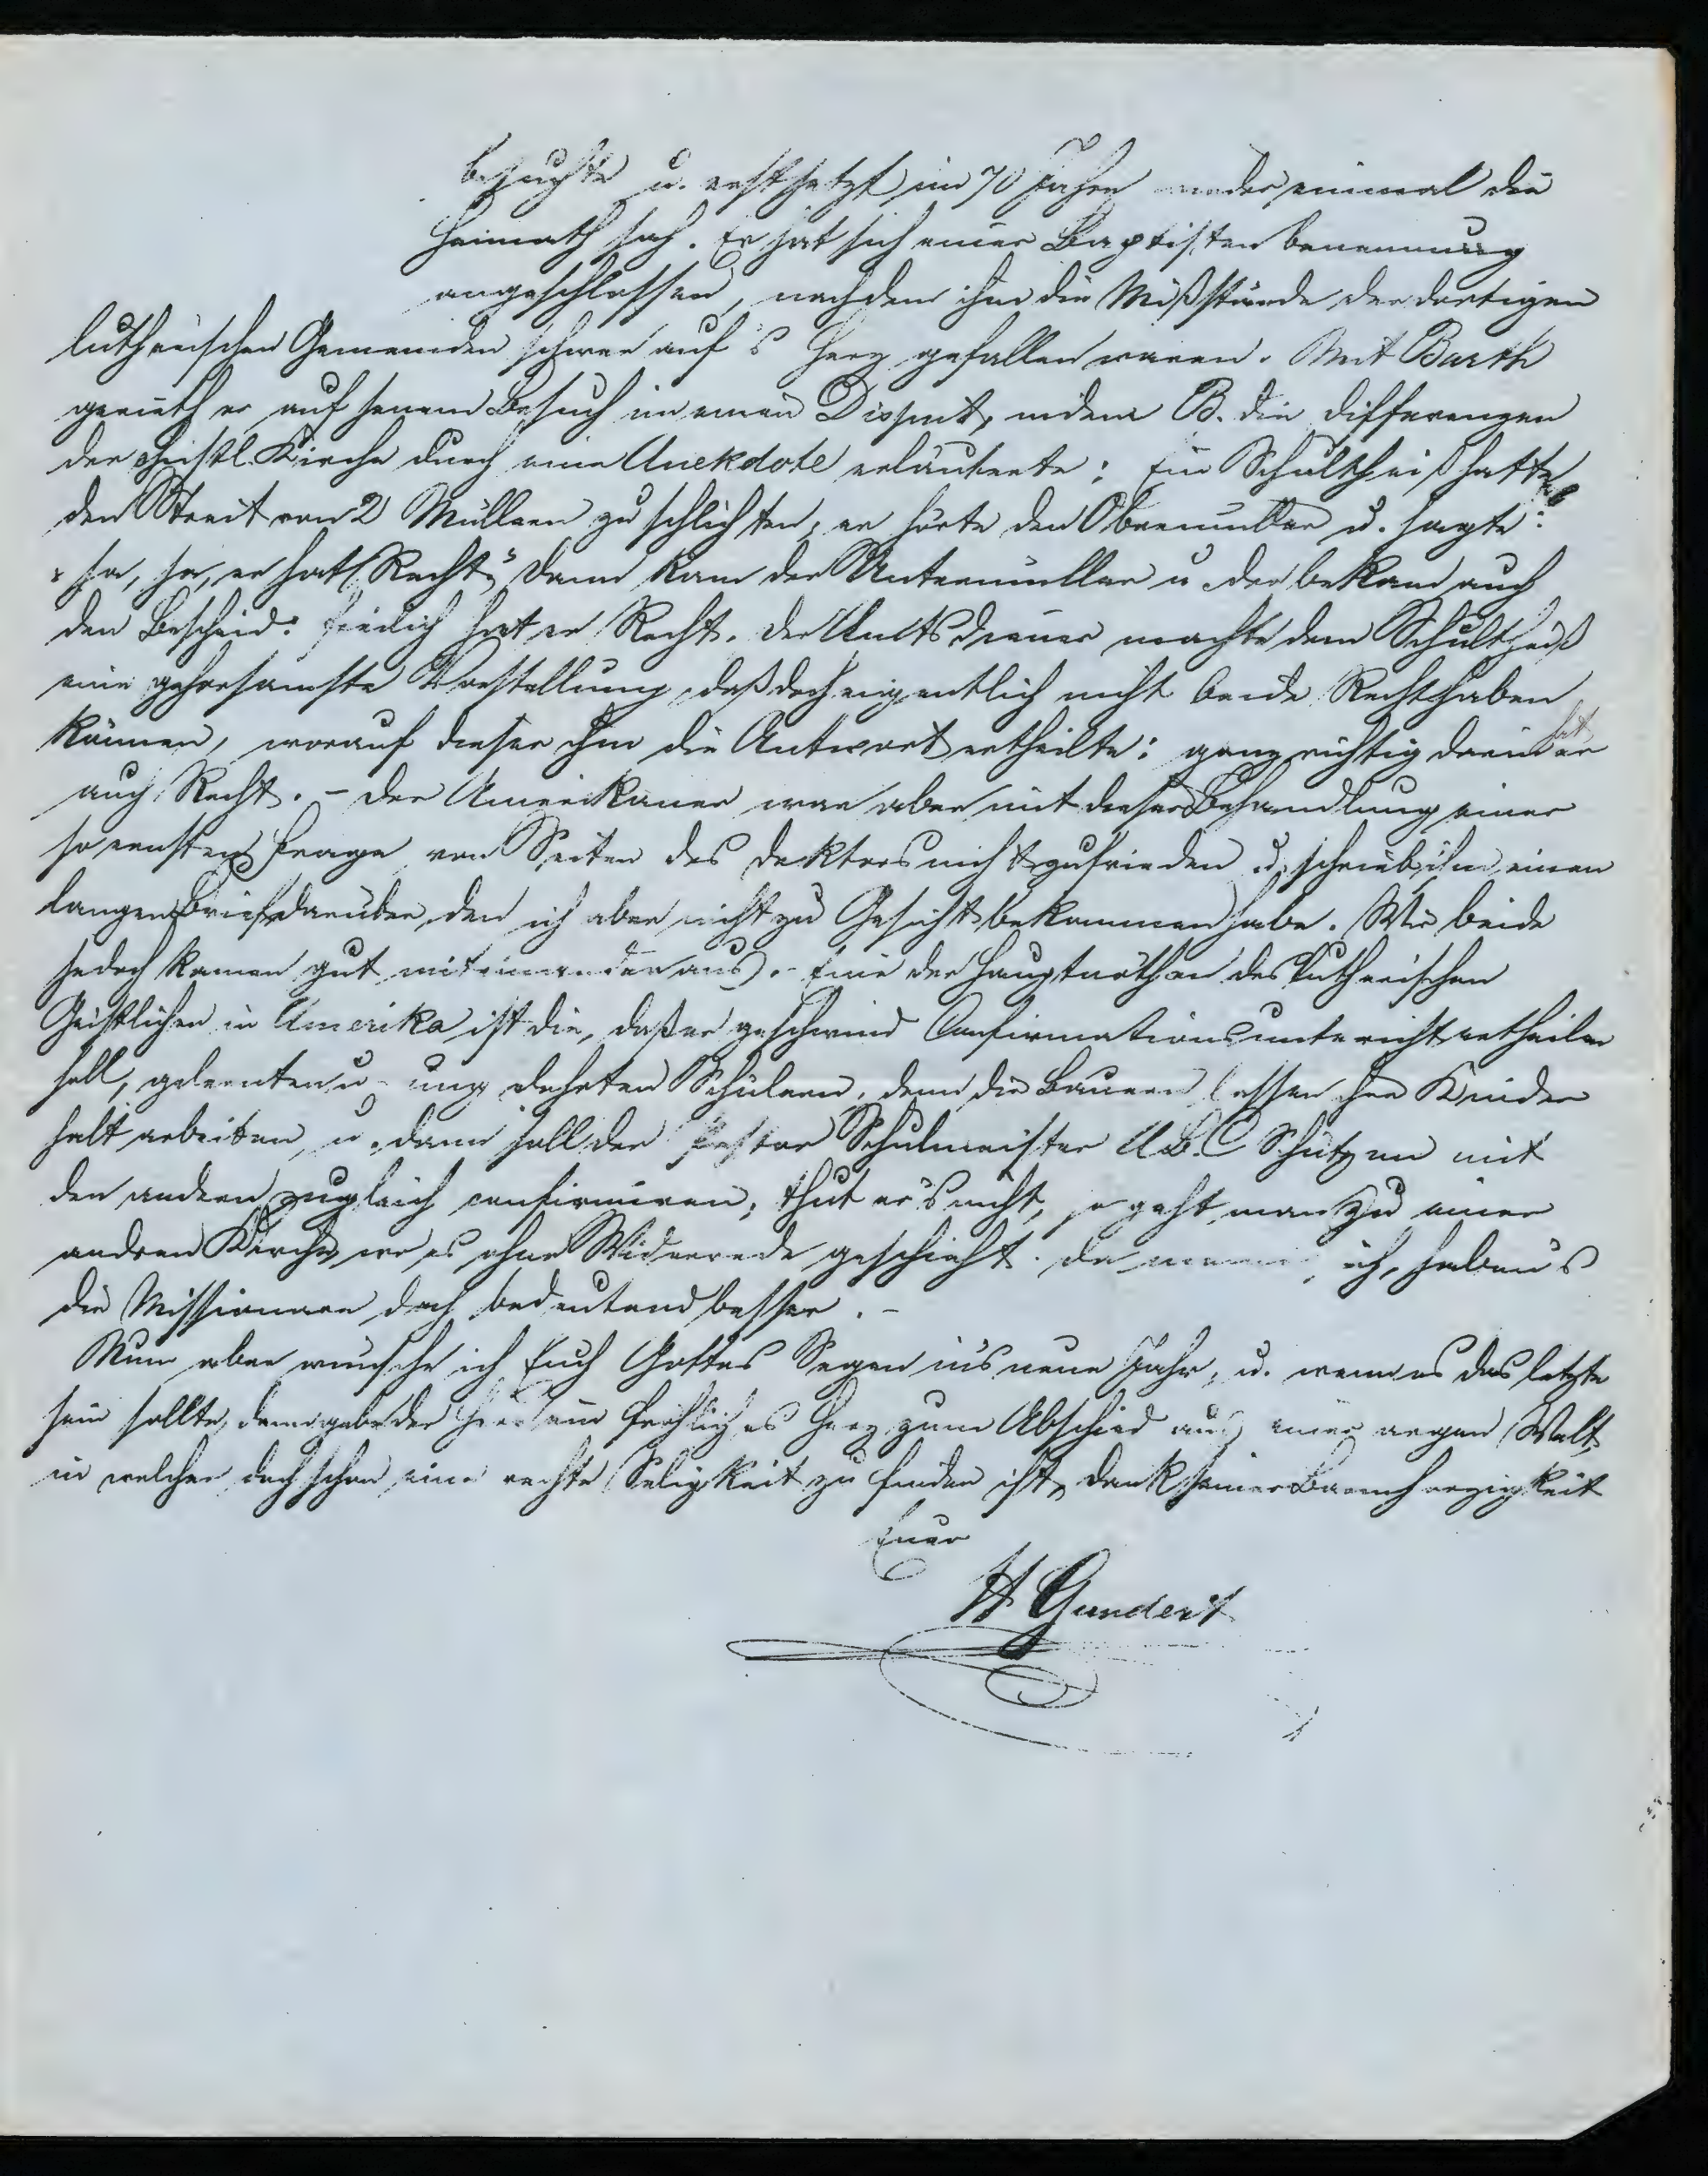 besuchte u. erst jetzt im 70 Jahre wieder einmal die
Heimath sah. Er hat sich einer Baptisten benennung
angeschlossen, nachdem ihm die Mißstände der dortigen
lutherischen Gemeinden schwer auf's Herz gefallen waren. Mit Barth
gerieth er auf jenem Besuch in einen Disput, indem B. die Differenzen
der christl. Kirche durch eine Anekdote erläuterte: Ein Schultheiß hatte
den Streit von 2 Müllern zu schlichten, er hörte den Obermüller u. sagte:
"ja, ja, er hat Recht" Dann kam der Untermüller u. der bekam auch
den Bescheid: freilich hat er Recht. Der Amtsdiener machte dem Schultheiß
eine gehorsamste Vorstellung, daß doch eigentlich nicht beide Recht haben
können, worauf dieser ihm die Antwort ertheilte: ganz richtig darin hat er
auch Recht. - Der Amerikaner war aber mit dieser Behandlung einer
so ernsten Frage von Seiten des Doktors nicht zufrieden u. schrieb ihm einen
langen Brief darüber, den ich aber nicht zu Gesicht bekommen habe. Wir beide
jedoch kamen gut miteinander aus. - Eine der Hauptnöthen des lutherischen
Geistlichen in Amerika ist die, daß er geschwind Confirmationsunterricht ertheilen
soll, gelernten u. ungelehrten Schülern, denn die Bauern lassen ihre Kinder
halt arbeiten, u. dann soll der Pastor Schulmeister ABC Schützen mit
den andern zugleich confirmiren; thut er's nicht, so geht man zu einer
andren Kirche, wo es ohne Widerrede geschieht. Da meine ich, haben's
die Missionare doch bedeutend besser. -
Nun aber wünsche ich Euch Gottes Segen in's neue Jahr, u. wenn es das letzte
sein sollte, dann gebe der Herr ein fröhliches Herz zum Abschied aus einer argen Welt,
in welcher doch schon eine rechte Seligkeit zu finden ist, Dank seiner Barmherzigkeit
Euer
H Gundert